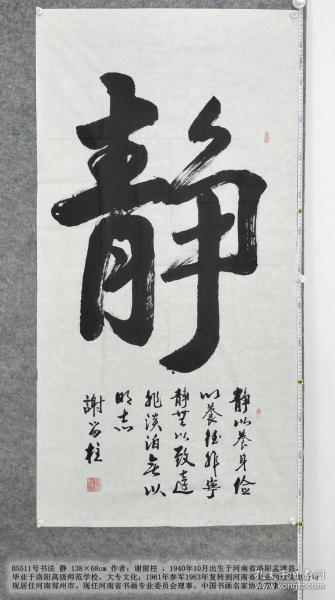 静
静以养身俭
以养德非宁
静無以致遠
非淡泊無以
明志
謝留柱
B5511号书法 静 138×68cm 作者:谢留柱 ,1940年10月出生于河南省洛阳孟津县,
毕业于洛阳高级师范学校,大专文化;1961年参军1963年复转到河南省
现居住河南郑州市。现任河南省书画专业委员会理事、中国书画名家协会理事